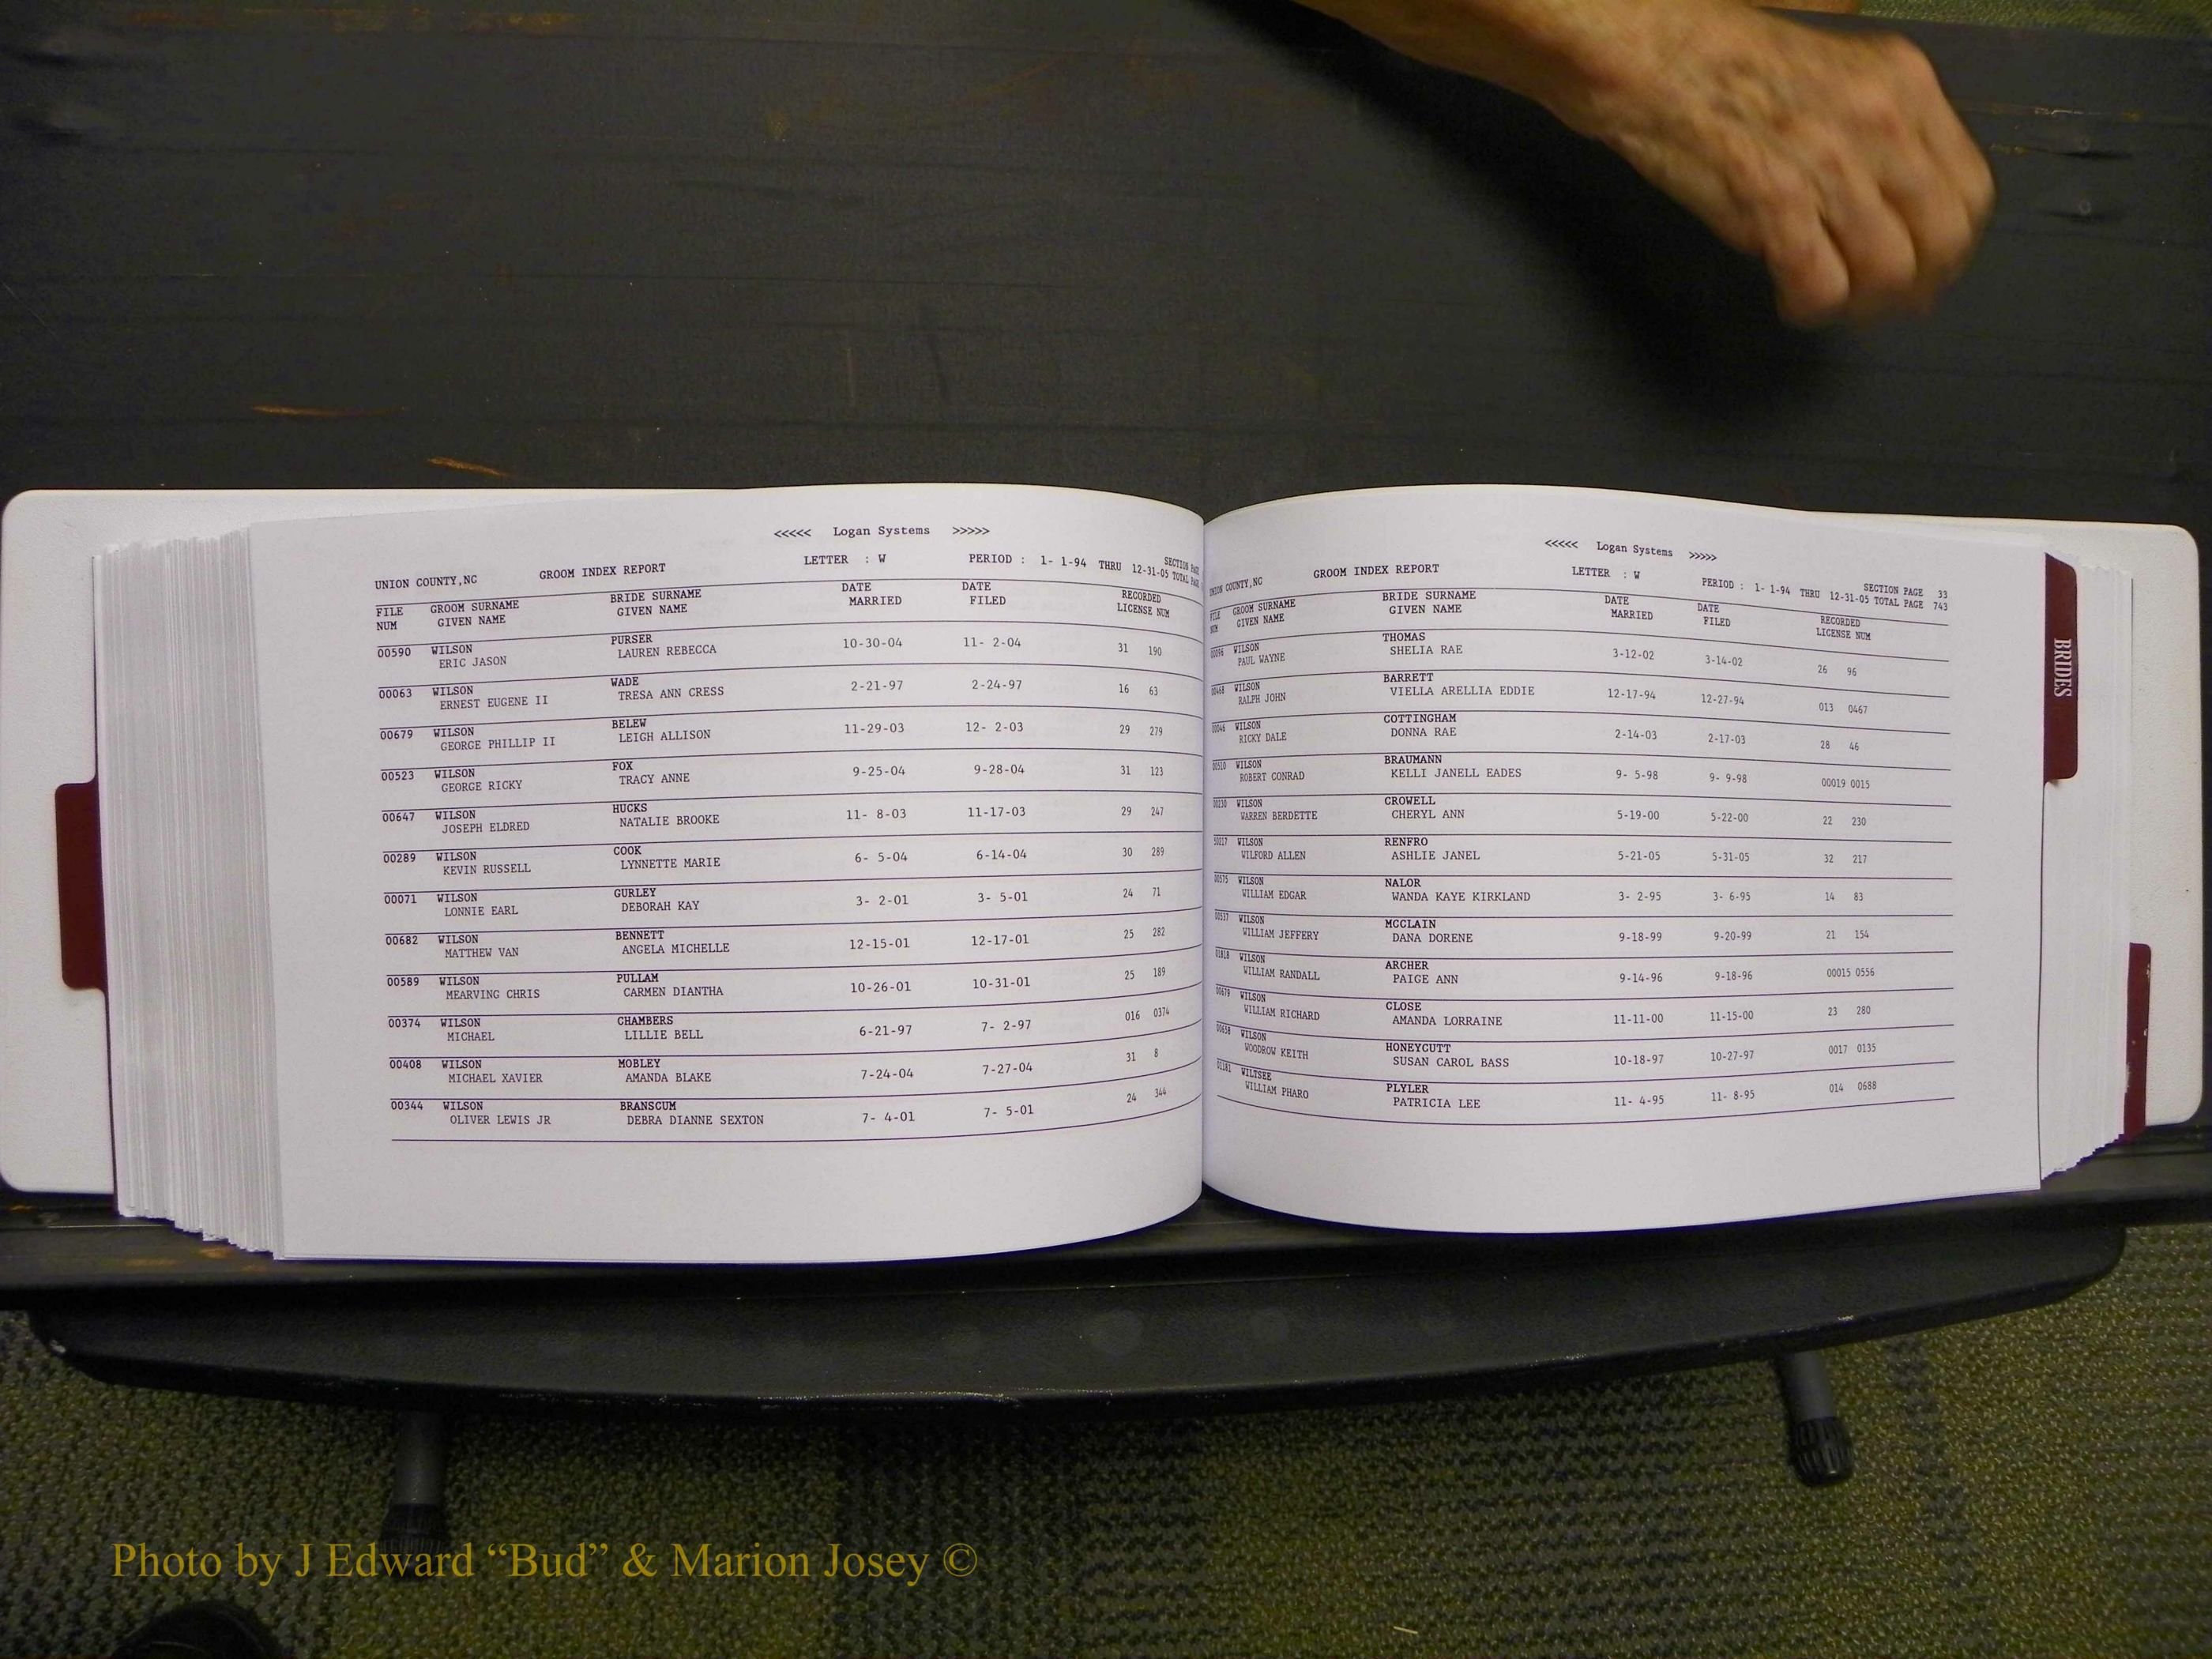 <<<<< Logan Systems >>>>>
UNION COUNTY,NC GROOM INDEX REPORT LETTER : W PERIOD : 1- 1-94 THRU 12-31-05 SECTION PAGE
TOTAL PAGE
FILE GROOM SURNAME BRIDE SURNAME DATE DATE RECORDED
NUM GIVEN NAME GIVEN NAME MARRIED FILED LICENSE NUM
00590 WILSON PURSER 10-30-04 11- 2-04 31 190
ERIC JASON LAUREN REBECCA
00063 WILSON WADE 2-21-97 2-24-97 16 63
ERNEST EUGENE II TRESA ANN CRESS
00679 WILSON BELEW 11-29-03 12- 2-03 29 279
GEORGE PHILLIP II LEIGH ALLISON
00523 WILSON FOX 9-25-04 9-28-04 31 123
GEORGE RICKY TRACY ANNE
00647 WILSON HUCKS 11- 8-03 11-17-03 29 247
JOSEPH ELDRED NATALIE BROOKE
00289 WILSON COOK 6- 5-04 6-14-04 30 289
KEVIN RUSSELL LYNNETTE MARIE
00071 WILSON GURLEY 3- 2-01 3- 5-01 24 71
LONNIE EARL DEBORAH KAY
00682 WILSON BENNETT 12-15-01 12-17-01 25 282
MATTHEW VAN ANGELA MICHELLE
00589 WILSON PULLAM 10-26-01 10-31-01 25 189
MEARVING CHRIS CARMEN DIANTHA
00374 WILSON CHAMBERS 6-21-97 7- 2-97 016 0374
MICHAEL LILLIE BELL
00408 WILSON MOBLEY 7-24-04 7-27-04 31 8
MICHAEL XAVIER AMANDA BLAKE
00344 WILSON BRANSCUM 7- 4-01 7- 5-01 24 344
OLIVER LEWIS JR DEBRA DIANNE SEXTON
<<<<< Logan Systems >>>>>
UNION COUNTY,NC GROOM INDEX REPORT LETTER : W PERIOD : 1- 1-94 THRU 12-31-05 SECTION PAGE 33
TOTAL PAGE 743
FILE GROOM SURNAME BRIDE SURNAME DATE DATE RECORDED
NUM GIVEN NAME GIVEN NAME MARRIED FILED LICENSE NUM
00096 WILSON THOMAS 3-12-02 3-14-02 26 96
PAUL WAYNE SHELIA RAE
WILSON BARRETT 12-17-94 12-27-94 013 0467
RALPH JOHN VIELLA ARELLIA EDDIE
00046 WILSON COTTINGHAM 2-14-03 2-17-03 28 46
RICKY DALE DONNA RAE
00510 WILSON BRAUMANN 9- 5-98 9- 9-98 00019 0015
ROBERT CONRAD KELLI JANELL EADES
00230 WILSON CROWELL 5-19-00 5-22-00 22 230
WARREN BERDETTE CHERYL ANN
WILSON RENFRO 5-21-05 5-31-05 32 217
WILFORD ALLEN ASHLIE JANEL
00575 WILSON NALOR 3- 2-95 3- 6-95 14 83
WILLIAM EDGAR WANDA KAYE KIRKLAND
00537 WILSON MCCLAIN 9-18-99 9-20-99 21 154
WILLIAM JEFFERY DANA DORENE
WILSON ARCHER 9-14-96 9-18-96 00015 0556
WILLIAM RANDALL PAIGE ANN
00679 WILSON CLOSE 11-11-00 11-15-00 23 280
WILLIAM RICHARD AMANDA LORRAINE
00658 WILSON HONEYCUTT 10-18-97 10-27-97 0017 0135
WOODROW KEITH SUSAN CAROL BASS
01181 WILTSEE PLYLER 11- 4-95 11- 8-95 014 0688
WILLIAM PHARO PATRICIA LEE
BRIDES
Photo by J Edward “Bud” & Marion Josey ©